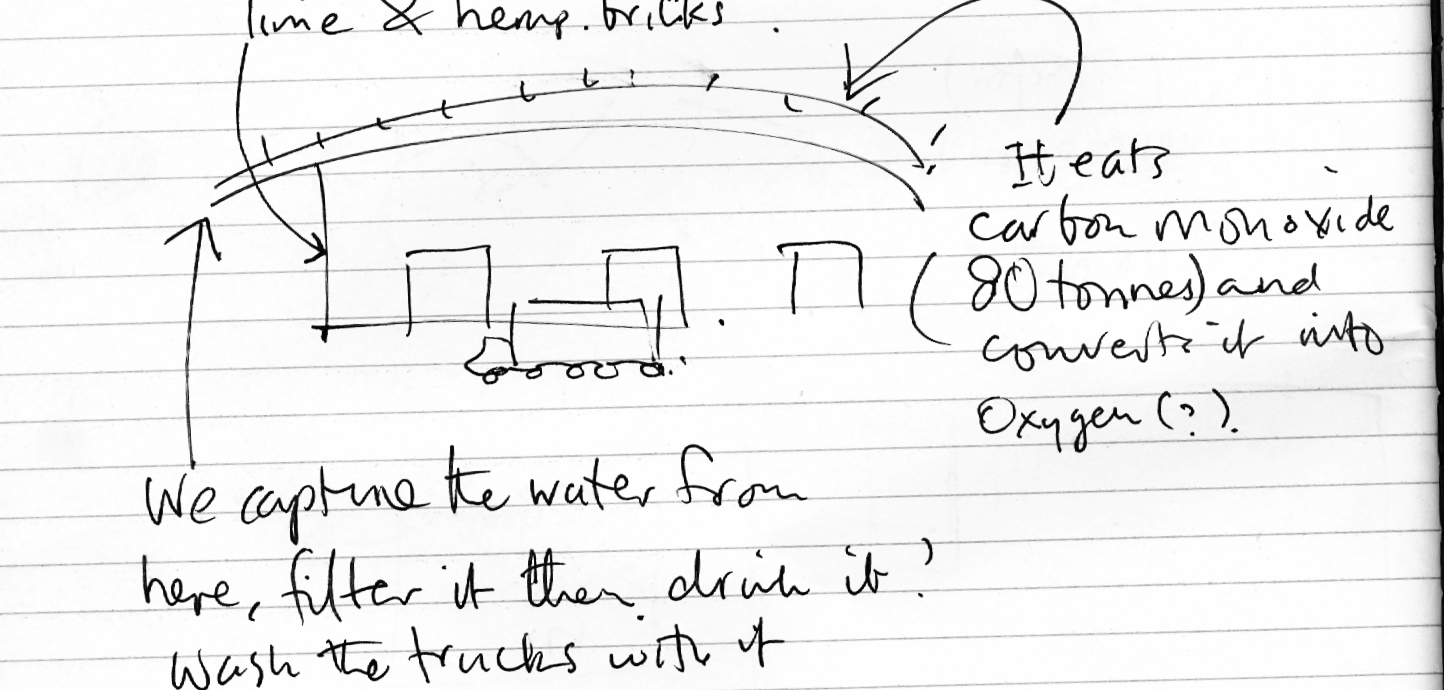 lime & hemp.bricks.
It eats
carbon monoxide
(80 tonnes) and
converts it into
Oxygen (?).
We capture the water from
here, filter it then drink it?
wash the trucks with it